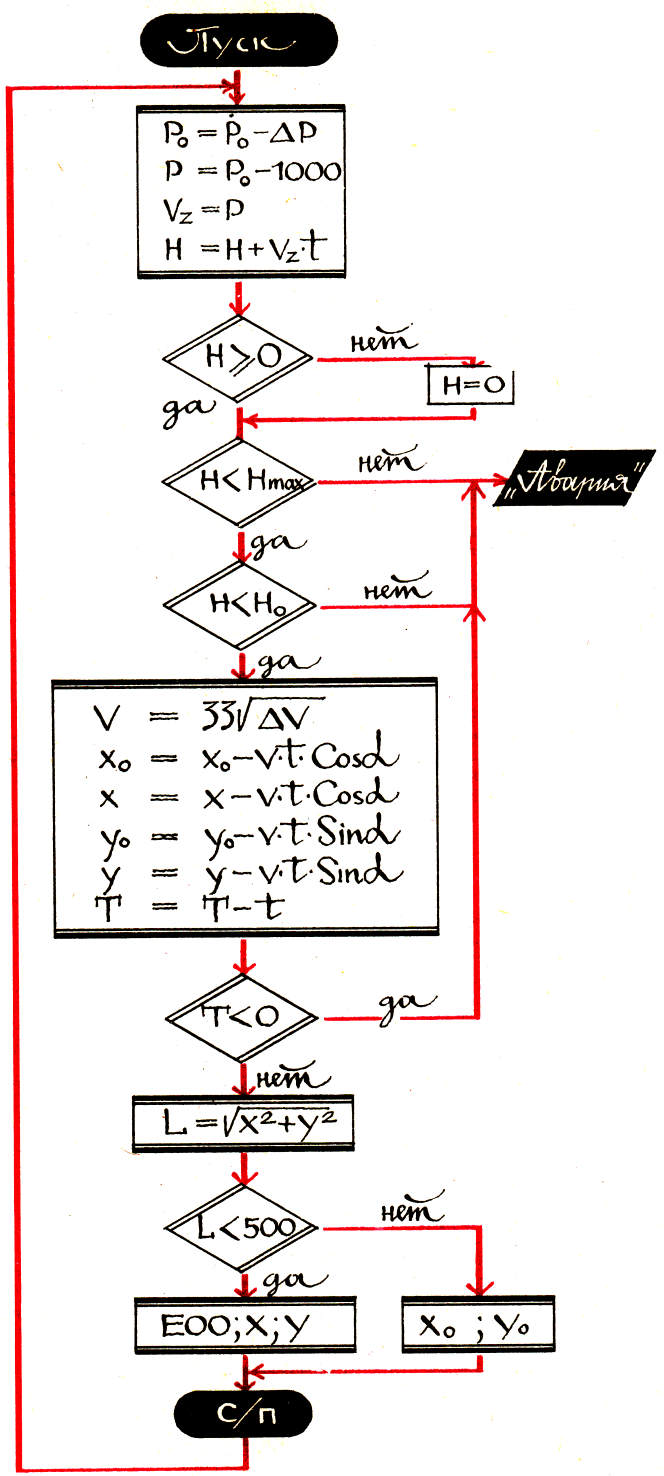 Пуск
P₀ = P₀ - ΔP
P = P₀ - 1000
V_z = P
H = H + V_z·t
H ⩾ 0
нет
H = 0
да
H < H max
нет
„Авария"
да
H < H₀
нет
да
V = 33√ΔV
x₀ = x₀ - v·t·Cosα
x = x - v·t·Cosα
y₀ = y₀ - v·t·Sinα
y = y - v·t·Sinα
T = T - t
T < 0
да
нет
L = √x² + y²
L < 500
нет
да
ЕОО; X; Y
X₀ ; Y₀
С/П